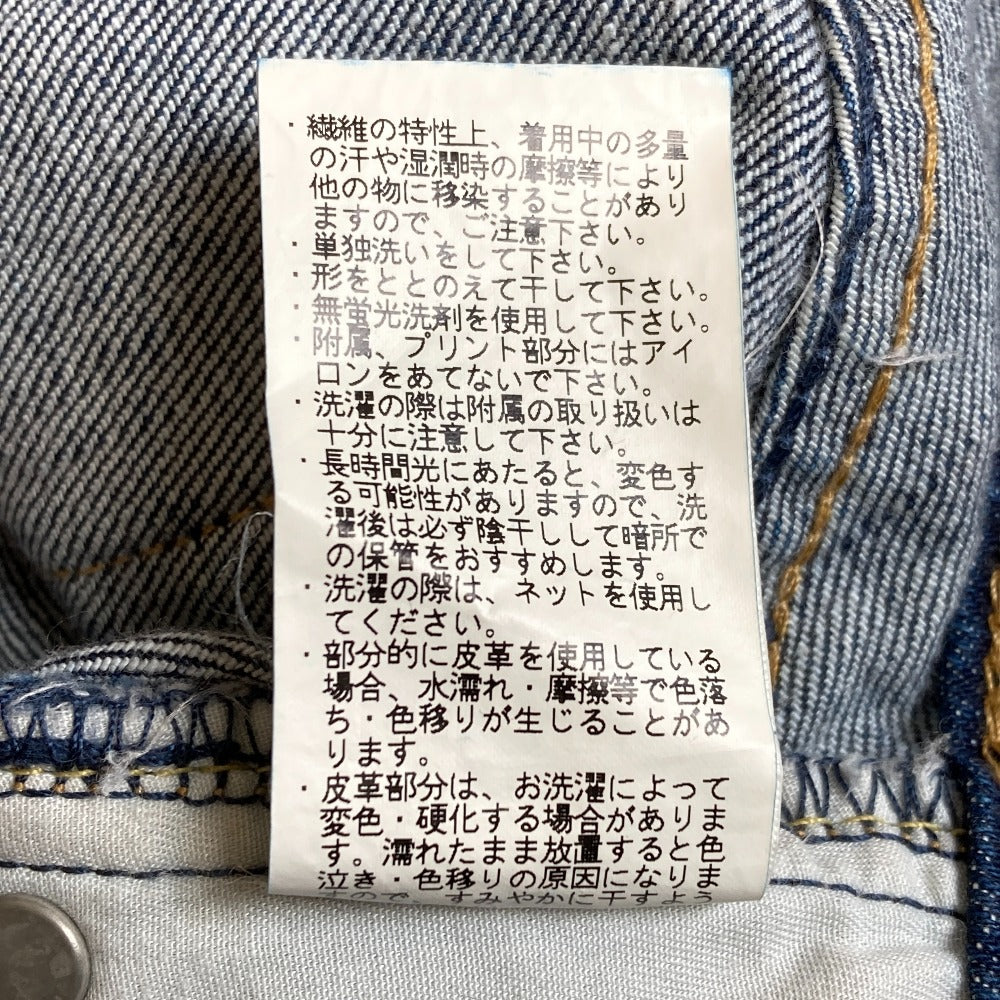 ・繊維の特性上、着用中の多量
の汗や湿潤時の摩擦等により
他の物に移染することがあり
ますので、ご注意下さい。
・単独洗いをして下さい。
・形をととのえて干して下さい。
・無蛍光洗剤を使用して下さい。
・附属、プリント部分にはアイ
ロンをあてないで下さい。
・洗濯の際は附属の取り扱いは
十分に注意して下さい。
・長時間光にあたると、変色す
る可能性がありますので、洗
濯後は必ず陰干しして暗所で
の保管をおすすめします。
・洗濯の際は、ネットを使用し
てください。
・部分的に皮革を使用している
場合、水濡れ・摩擦等で色落
ち・色移りが生じることがあ
ります。
・皮革部分は、お洗濯によって
変色・硬化する場合がありま
す。濡れたまま放置すると色
泣き・色移りの原因になりま
すので、すみやかに干すよう